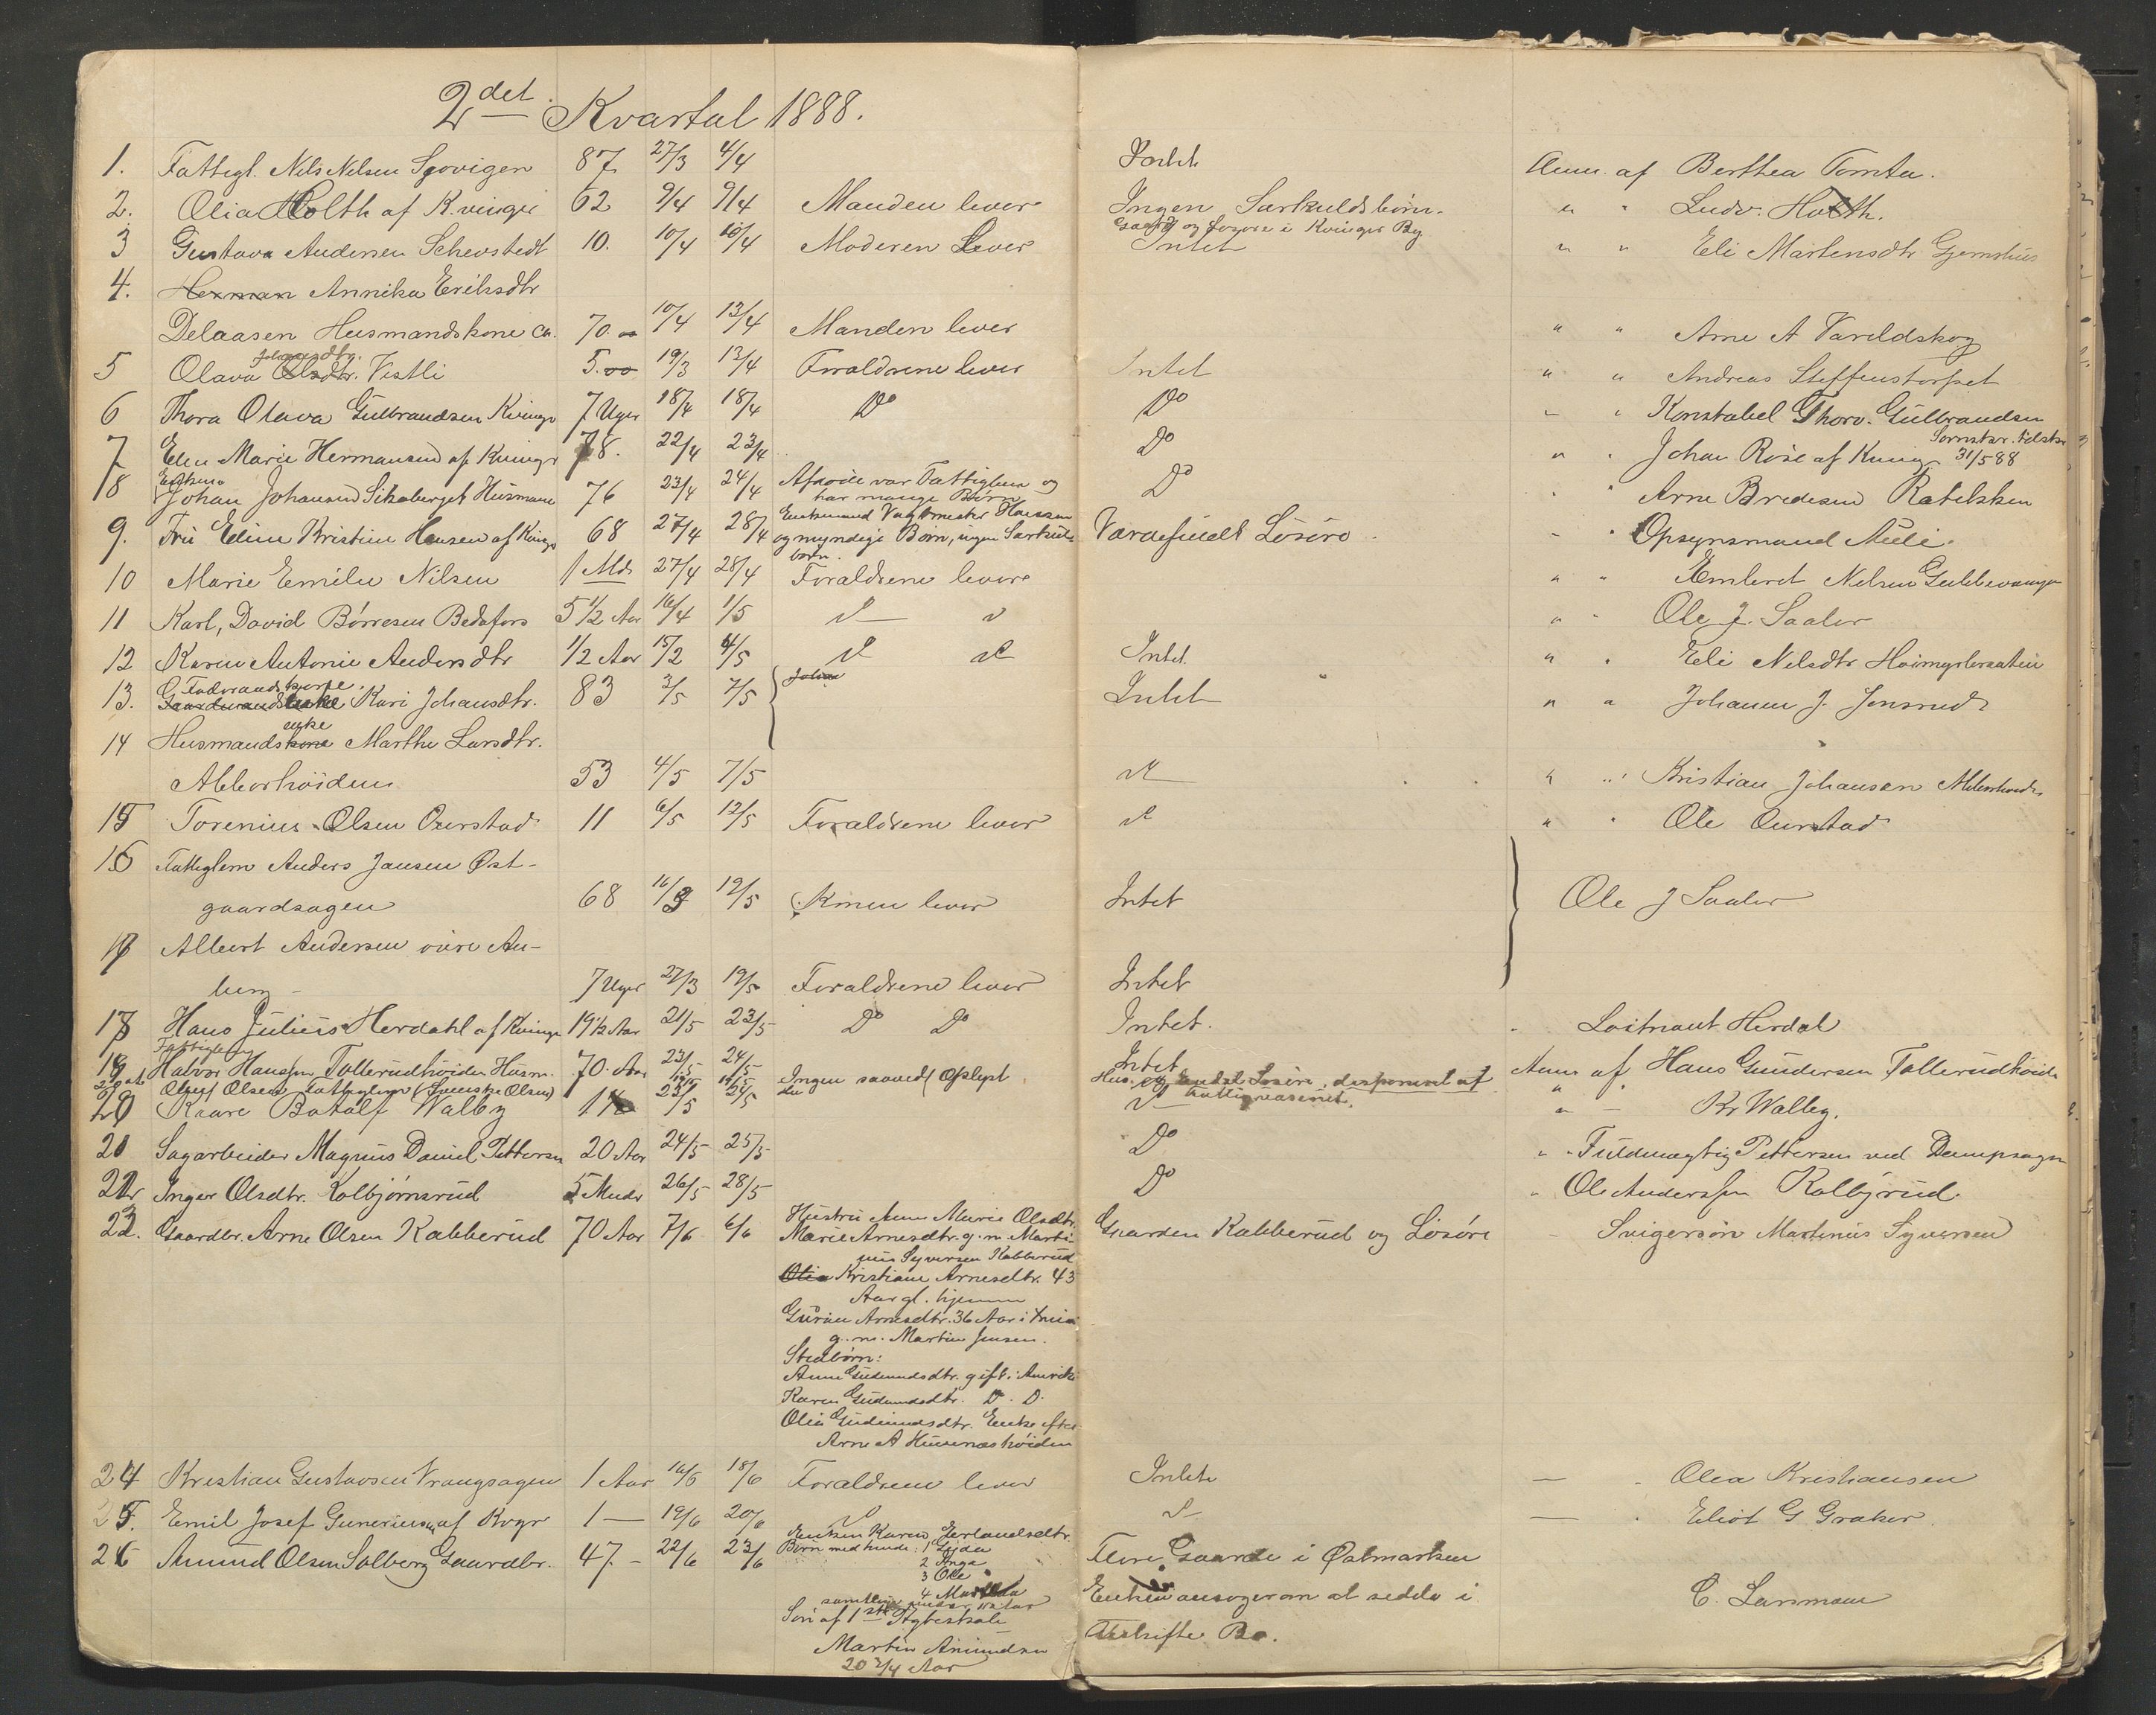 2det Kvartal 1888.
1. Fattigl. Nils Nilsen Sgovigen 87 27/3 4/4 Intet Anm. af Berthea Tomta.
2. Olia Holth af K.vinger 62 9/4 9/4 Manden lever Ingen Særkuldsbørn. " " Ludv. Holth.
Gaard og Løsøre i Kvinger By
3 Gustava Andersen Schevstedt 10. 10/4 10/4 Moderen Lever Intet " " Eli Martensdtr Gjemshus
4. Herman Annika Eriksdtr
Delaasen Husmandskone ca. 70. 10/4 13/4 Manden lever " " Arne A Varildskog
Johansdtr.
5 Olava Olsdtr. Vestli 5. 19/3 13/4 Forældrene lever Intet " " Andreas Steffenstorpet
6 Thora Olava Gulbrandsen Kvinger 7 Uger 18/4 18/4 Do Do " " Konstabel Thorv. Gulbrandsen
7 Elen Marie Hermansen af Kvinger 78. 22/4 23/4 Do " " Johan Rise af Kving. 31/5 88
Enkem.
8 Johan Johansen Sikaberget Husmand 76 23/4 24/4 Afdøde var Fattiglem og Do " " Arne Bredesen Rabelsken
har mange Børn
9. Fru Eline Kristine Hansen af Kvingr 68 27/4 28/4 Enkemand Vagtmester Hanssen Værdifuldt Løsøre. " " Opsynsmand Auli.
og myndige Børn, ingen Særkulds
børn.
10 Marie Emilie Nilsen 1 Md. 27/4 28/4 Forældrene lever " " Embret Nilsen Gulbevangen
11 Karl, David Børresen Bedafors 5 1/2 Aar 16/4 1/5 " " Ole J. Saaler
12 Karen Antonie Andersdtr 1/2 Aar 15/2 4/5 Intet. " " Eli Nilsdtr Hoimyrbraaten
Føderaadskone.
13. Gaardmandsenke Kari Johansdtr. 83 3/5 7/5 Intet " " Johannes J. Jonsrud
enke
14 Husmandskone Marthe Larsdtr.
Abborhøiden 53 4/5 7/5 " " Kristian Johansen Abborhøiden
15 Torenius Olsen Overstad 11 6/5 12/5 Forældrene lever " " Ole Overstad
16 Fattiglem Anders Jansen Øst-
gaardsagen 68 16/3 19/5 Konen lever Intet Ole J Saaler
17 Albert Andersen øvre An-
berg 7 Uger 27/3 19/5 Forældrene lever Intet
18 Hans Julius Herdahl af Kvinger 19 1/2 Aar 21/5 23/5 Do Do Intet. " Løitnant Herdal
Fattiglem
19 Halvor Hanssen Tollerudhøiden Husm. 70. Aar 23/5 24/5 Intet Anm af Hans Gundersen Tollerudhøiden
Oluf Olsen Fattiglem (Svenske Olsen) Ingen saavidt Oplyst Hus og endel Løsøre, disponeret af
Fattigvæsenet.
20 Kaare Botolf Walby 1 23/5 24/5 " Kr Walby.
20 Sagarbeider Magnus Daniel Pettersen 20 Aar 24/5 25/5 Do " Fuldmægtig Pettersen ved Dampsagen
22 Inger Olsdtr. Kolbjørnsrud 5 Mndr 26/5 28/5 Do " Ole Anderssen Kolbjrud.
23. Gaardbr. Arne Olsen Kabberud 70 Aar 7/6 6/6 Hustru Anne Marie Olsdtr. Gaarden Kabberud og Løsøre Svigersøn Martinius Syversen
Marie Arnesdtr. g. m. Marti-
nius Syversen Kabberud
Olia Kristiane Arnesdtr. 43
Aar gl. hjemme
Gurine Arnesdtr. 36 Aar i
g. m. Martin Jensen.
Stedbørn:
Anne Gudmundsdtr. gift i Amerika
Karen Gudmundsdtr. D. D.
Olia Gudmundsdtr. Enke efter
Arne A Huvenæshøiden
24 Kristian Gustavsen Vrangsagen 1 Aar 16/6 18/6 Forældrene lever Intet Olea Kristiansen
25. Emil Josef Guneriusen af Kvgr 1 — 19/6 20/6 Eliot G Graker.
26 Amund Olsen Solberg Gaardbr. 47 - 22/6 23/6 Enken Karen Erlandsdtr. Flere Gaarde i Østmarken
Børn med hende: 1 Gjda
2 Inga
3 Ole
4 Mathilda Enken ansøger om at sidde i C. Lensmann
samtlige under
Søn af 1ste Ægteskab uskifte Bo.
Martin Amundsen
20 3/4 Aar